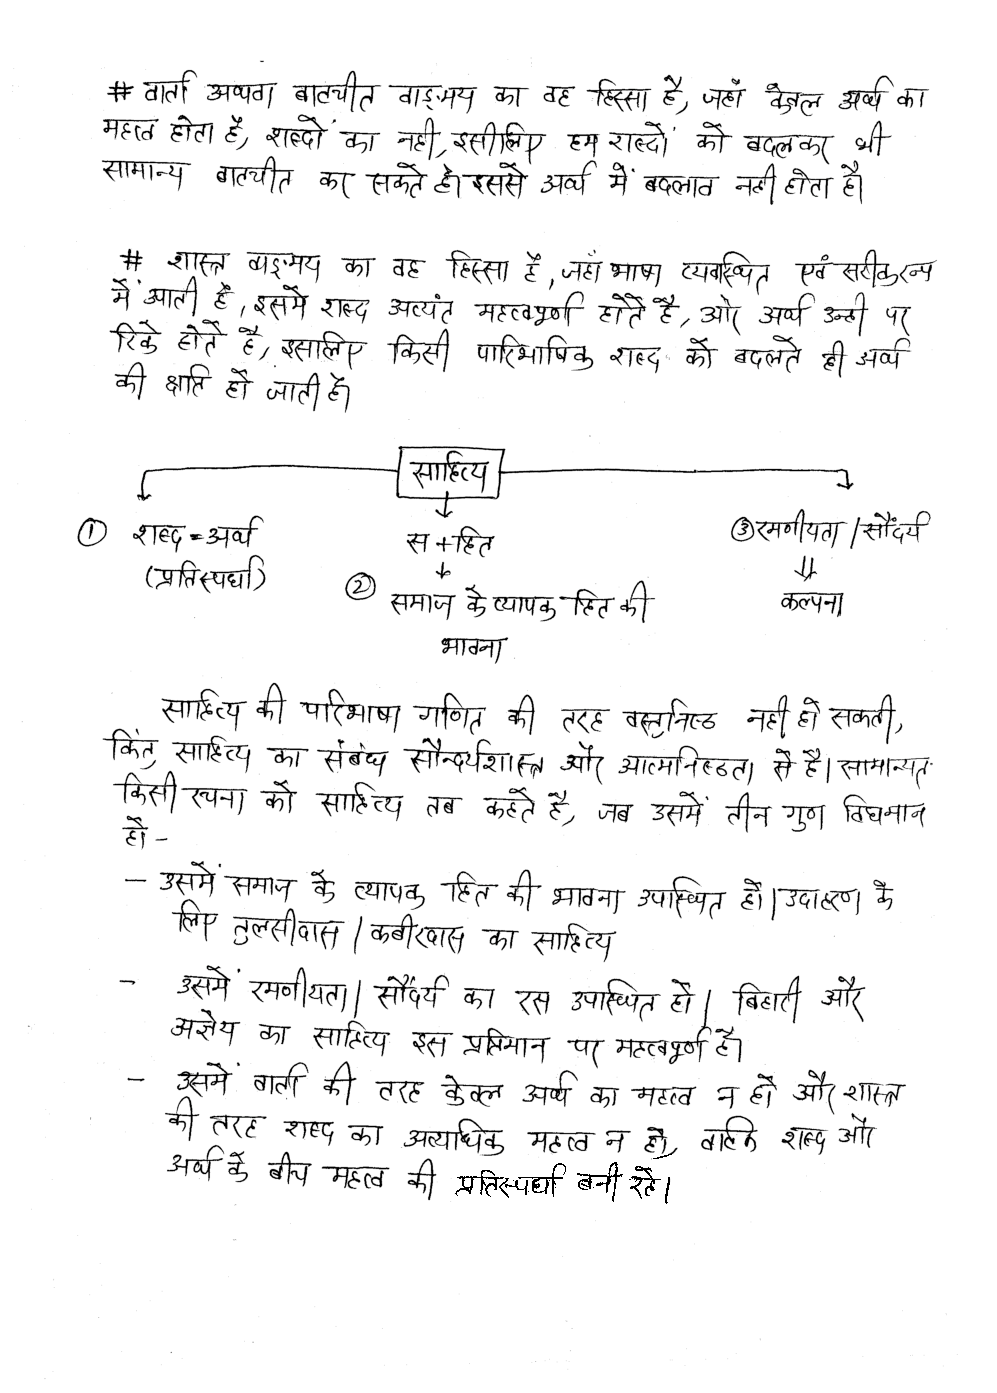 # वार्ता अथवा बातचीत वाङ्मय का वह हिस्सा है, जहाँ केवल अर्थ का
महत्व होता है, शब्दों का नही, इसीलिए हम शब्दों को बदलकर भी
सामान्य बातचीत कर सकते है। इससे अर्थ में बदलाव नही होता है।
# शास्त्र वाङ्मय का वह हिस्सा है, जहाँ भाषा व्यवस्थित एवं सटीक रूप
में आती है, इसमें शब्द अत्यंत महत्वपूर्ण होते है, और अर्थ उन्ही पर
टिके होते है, इसलिए किसी पारिभाषिक शब्द को बदलते ही अर्थ
की क्षति हो जाती है।
साहित्य
① शब्द = अर्थ
(प्रतिस्पर्धा)
स + हित
② समाज के व्यापक हित की
भावना
③ रमणीयता / सौंदर्य
कल्पना
साहित्य की परिभाषा गणित की तरह वस्तुनिष्ठ नही हो सकती,
किंतु साहित्य का संबंध सौन्दर्यशास्त्र और आत्मनिष्ठता से है। सामान्यत
किसी रचना को साहित्य तब कहते है, जब उसमें तीन गुण विधमान
हो -
- उसमें समाज के व्यापक हित की भावना उपस्थित हो। उदाहरण के
लिए तुलसीदास / कबीरदास का साहित्य
- उसमें रमणीयता / सौंदर्य का रस उपस्थित हो। बिहारी और
अज्ञेय का साहित्य इस प्रतिमान पर महत्वपूर्ण है।
- उसमें वार्ता की तरह केवल अर्थ का महत्व न हो और शास्त्र
की तरह शब्द का अत्यधिक महत्व न हो, बल्कि शब्द और
अर्थ के बीच महत्व की प्रतिस्पर्धा बनी रहे।